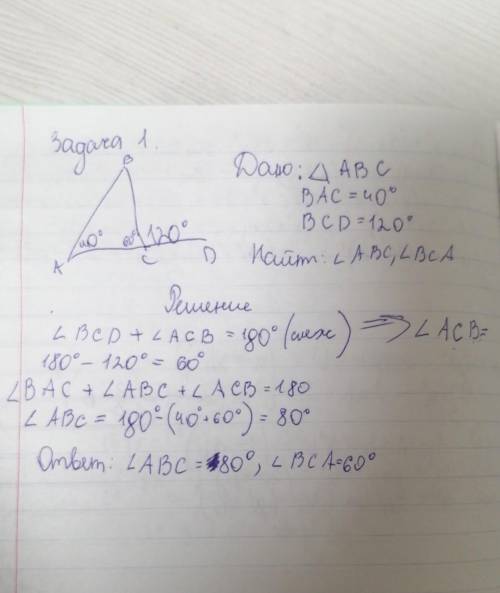 Задача 1.
B
Дано: △ ABC
BAC = 40°
BCD = 120°
40° 60° 120°
A C D
Найти: ∠ABC, ∠BCA
Решение
∠BCD + ∠ACB = 180° (смеж) ⟹ ∠ACB =
180° - 120° = 60°
∠BAC + ∠ABC + ∠ACB = 180
∠ABC = 180° - (40° + 60°) = 80°
Ответ: ∠ABC = 80°, ∠BCA = 60°